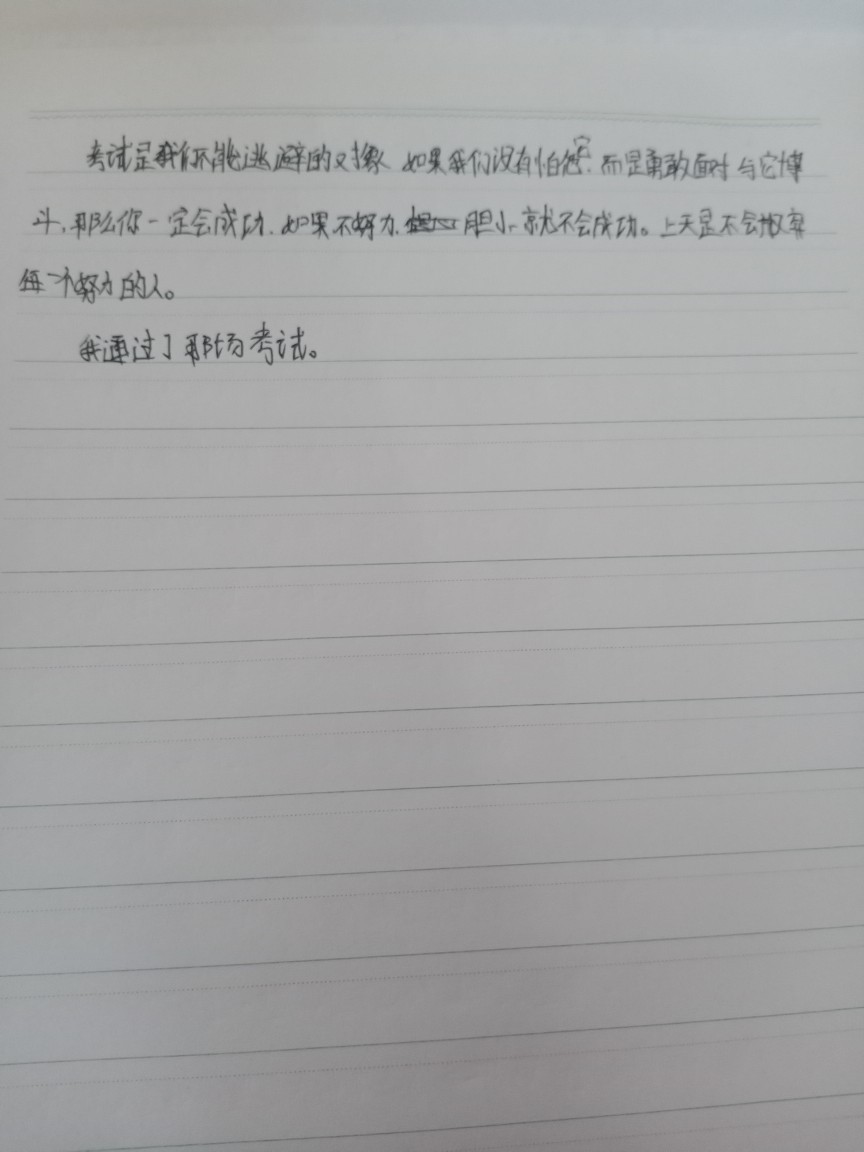 考试是我们不能逃避的对像 如果我们没有怕它.而是勇敢面对与它博
斗,那么你一定会成功.如果不努力.胆小就不会成功。上天是不会放弃
每一个努力的人。
我通过了那场考试。